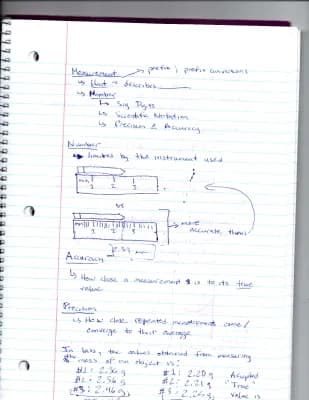 Measurement → prefix; prefix conversions
↳ Unit → describes
↳ Number
↳ Sig Digits
↳ Scientific Notation
↳ Precision & Accuracy
Number
limited by the instrument used
1 2 3
or
1 2 3
more accurate, than
Accuracy
↳ How close a measurement is to its true
value
Precision
↳ How close repeated measurements come/
converge to their average
In lab, two values obtained from measuring
the mass of an object is:
#1: 2.56 g #1: 2.20 g Accepted
#2: 2.56 g #2: 2.21 g "True"
#3: 2.46 g #3: 2.25 g value is